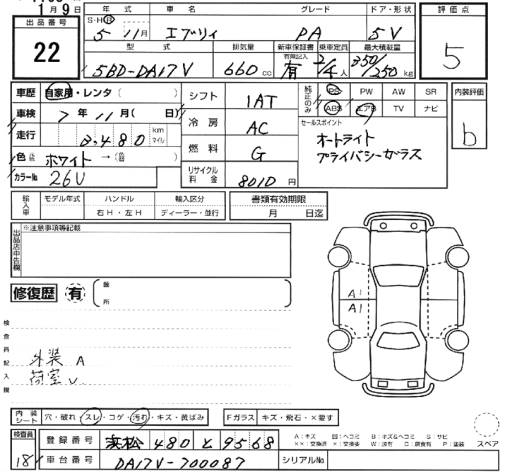 1月9日
出品番号
22
年式 車名 グレード ドア・形状
S・H・R 5年11月 エブリィ PA 5V
型式 排気量 新車保証書 乗車定員 最大積載量
有限記入
5BD-DA17V 660cc 有 2/4人 350/250kg
評価点
5
内装評価
b
車歴 自家用・レンタ( )
車検 7年11月( 日)
走行 3,480 km マイル
色 ホワイト →( )
カラーNo 26V
シフト 1AT
冷房 AC
燃料 G
リサイクル料金 8010円
純正のみ PS PW AW SR
ABS エアB TV ナビ
セールスポイント
オートライト
プライバシーガラス
輸入車 モデル年式 ハンドル 輸入区分
右H・左H ディーラー・並行
書類有効期限
月 日迄
出品店申告欄 ※注意事項等記載
修復歴 有 箇所
検査員記入欄
外装 A
荷室 U
A1
A1
内装シート 穴・破れ・スレ・コゲ・汚れ・キズ・黄ばみ
Fガラス キズ・飛石・×要す
検査員
181
登録番号 浜松 480 と 9568
車台番号 DA17V-700087
シリアルNo
A：キズ 凹：ヘコミ B：キズ&ヘコミ S：サビ
××：交換済 ×：交換要 W：波有 C：腐食有 P：塗装
スペア